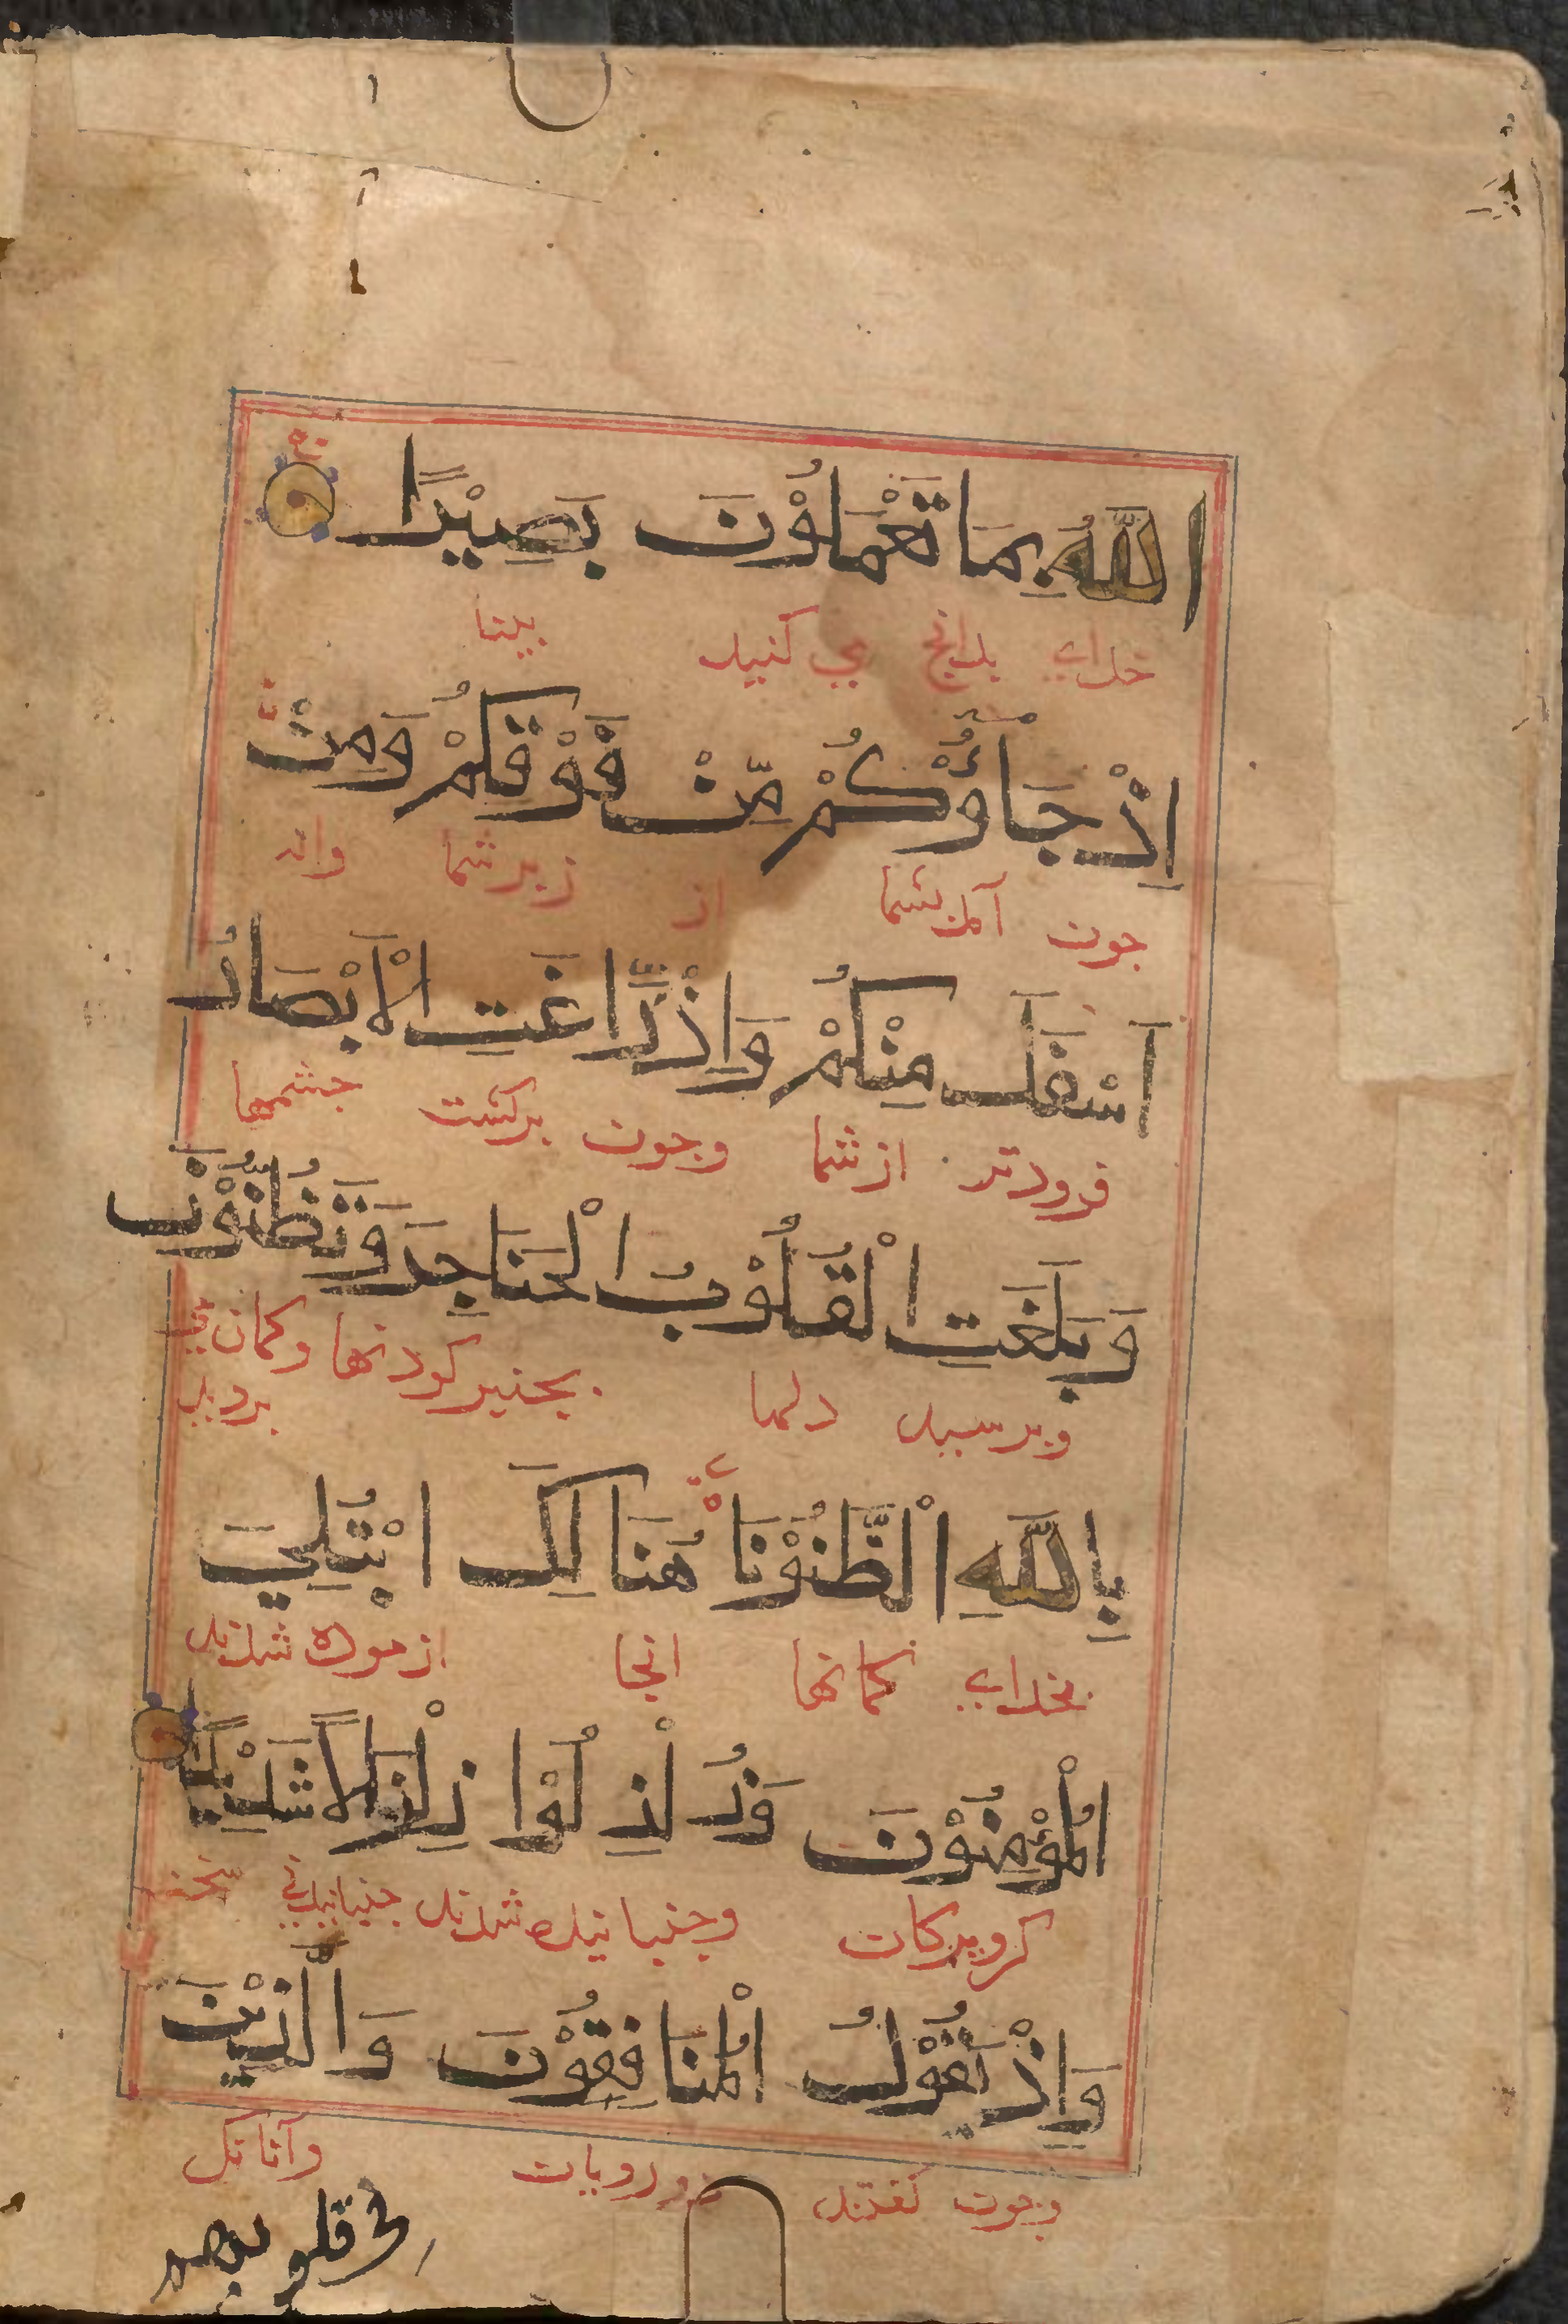 اللّٰهُ بِمَا تَعْمَلُوْنَ بَصِيْرًا
خدای بدانچ می کنید بینا
اِذْ جَاۤءُوْكُمْ مِّنْ فَوْقِكُمْ وَمِنْ
جون آمدند بشما از زبر شما واز
اَسْفَلَ مِنْكُمْ وَاِذْ زَّاغَتِ الْاَبْصَارُ
فرودتر از شما وجون برکشت جشمها
وَبَلَغَتِ الْقُلُوْبُ الْحَنَاجِرَ وَتَظُنُّوْنَ
وبرسید دلها بحنجر کودنها وکمان می بردید
بِاللّٰهِ الظُّنُوْنَا هُنَالِكَ ابْتُلِيَ
بخدای کمانها انجا ازموده شدند
الْمُؤْمِنُوْنَ وَزُلْزِلُوْا زِلْزَالًا شَدِيْدًا
کرویدکان وجنبانیده شدند جنبانیدنی سخت
وَاِذْ يَقُوْلُ الْمُنَافِقُوْنَ وَالَّذِيْنَ
وجون کفتند دورویان وآنانک
في قلوبهم